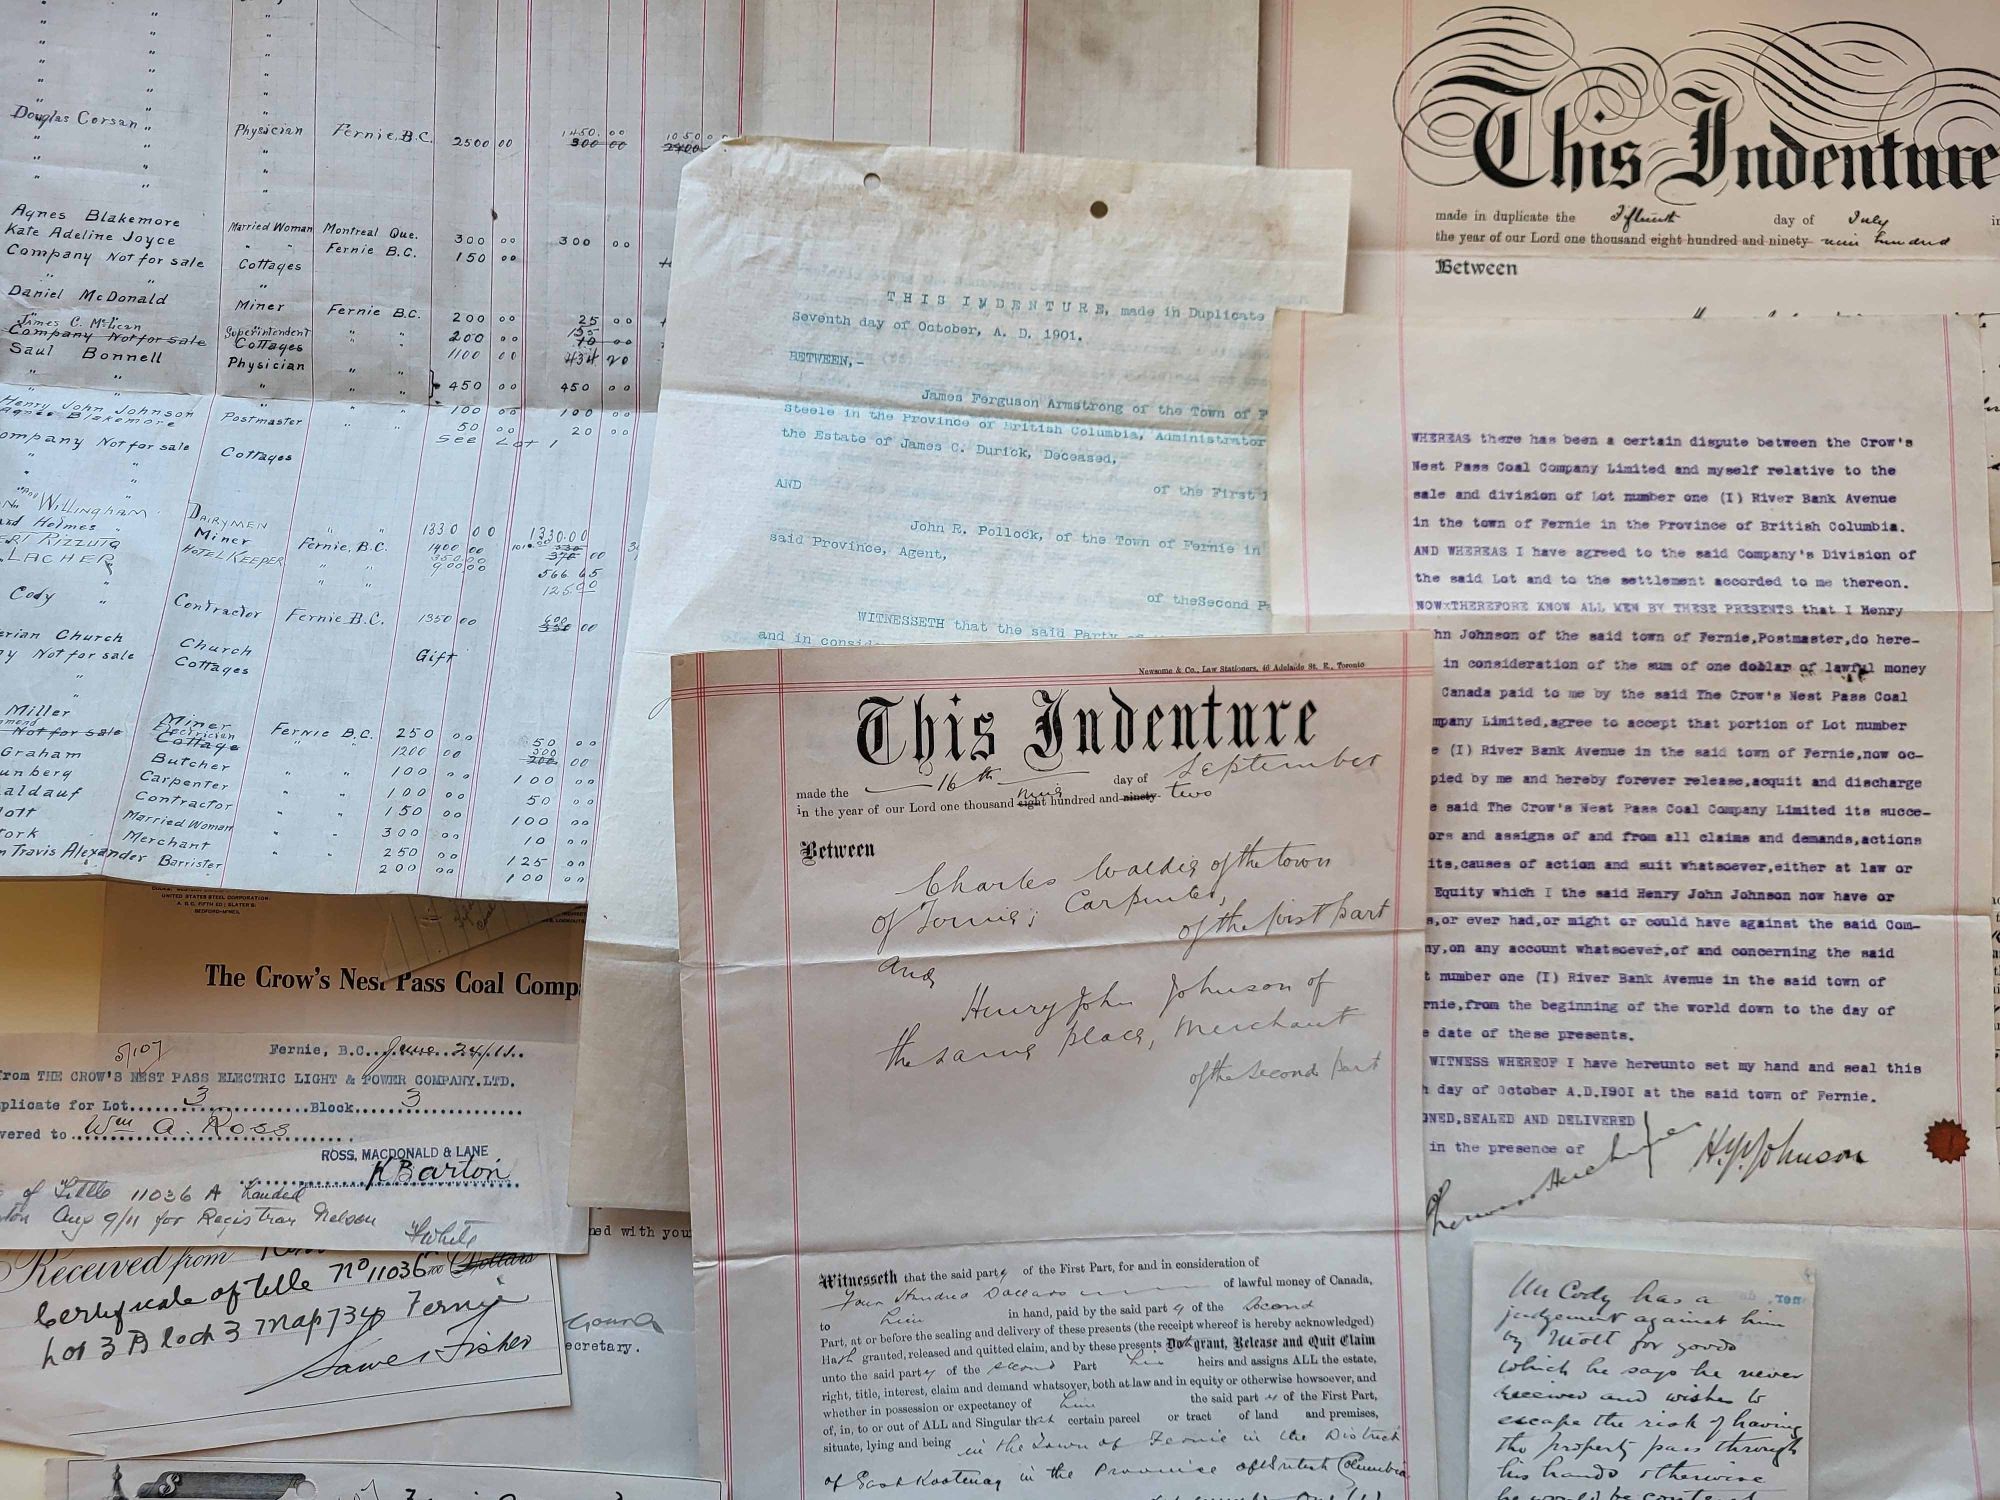 Douglas Corsan " Physician Fernie, B.C. 2500 00 1450.00 1050 00
300 00 2400 00
Agnes Blakemore Married Woman Montreal Que. 300 00 300 00
Kate Adeline Joyce " " Fernie B.C. 150 00
Company Not for sale Cottages
Daniel McDonald Miner Fernie B.C. 200 00 25 00
James C. McLean Superintendent " " 200 00
Company Not for sale Cottages 10 00
Saul Bonnell Physician " " 1100 00 434 20
" " " " 450 00 450 00
Henry John Johnson Postmaster " " 100 00 100 00
Agnes Blakemore 50 00 20 00
ompany Not for sale Cottages see Lot 1
Willingham Dairymen " " 1330 00 1330.00
Holmes " Miner Fernie, B.C. 1400 00
Rizzuto Hotel Keeper " " 370 00
LACHER 900 00 566 65
" " 125.00
Cody " Contractor Fernie B.C. 1350 00 600
350 00
erian Church Church Gift
y Not for sale Cottages
Miller Miner Fernie B.C. 250 00 50 00
Electrician
Not for sale Cottage " 1200 00 200 00
Graham Butcher " " 100 00 100 00
unberg Carpenter " " 100 00 50 00
aldauf Contractor " " 150 00 100 00
lott Married Woman " " 300 00 10 00
ork Merchant " " 250 00 125 00
m Travis Alexander Barrister 200 00 100 00
UNITED STATES STEEL CORPORATION
A. B. C. FIFTH ED; SLATER'S;
BEDFORD-McNEIL
The Crow's Nest Pass Coal Comp
5/107
Fernie, B.C...June..24/11..
from THE CROW'S NEST PASS ELECTRIC LIGHT & POWER COMPANY.LTD.
plicate for Lot......3......Block......3......
vered to..Wm A. Ross......
ROSS, MACDONALD & LANE
K Barton
of Title 11036 A handed
ton Aug 9/11 for Registrar Nelson
White
Received from
Certificate of title No 11036 Dollars
Lot 3 Block 3 map 734 Fernie
James Fisher
ned with you
ecretary.
THIS INDENTURE, made in Duplicate
Seventh day of October, A. D. 1901.
BETWEEN,-
James Ferguson Armstrong of the Town of F
Steele in the Province of British Columbia, Administrator
the Estate of James C. Durick, Deceased,
of the First
AND
John R. Pollock, of the Town of Fernie in
said Province, Agent,
of theSecond P
WITNESSETH that the said Party of
and in consid
Newsome & Co., Law Stationers, 46 Adelaide St. E., Toronto
This Indenture
made the 16th day of September
in the year of our Lord one thousand eight nine hundred and ninety two
Between
Charles Waldie of the town
of Fernie, Carpenter,
of the first part
and
Henry John Johnson of
the same place, Merchant
of the second part
Witnesseth that the said party of the First Part, for and in consideration of
Four Hundred Dollars of lawful money of Canada,
to him in hand, paid by the said party of the Second
Part, at or before the sealing and delivery of these presents (the receipt whereof is hereby acknowledged)
Hath granted, released and quitted claim, and by these presents Doth grant, Release and Quit Claim
unto the said party of the second Part his heirs and assigns ALL the estate,
right, title, interest, claim and demand whatsoever, both at law and in equity or otherwise howsoever, and
whether in possession or expectancy of him the said party of the First Part,
of, in, to or out of ALL and Singular that certain parcel or tract of land and premises,
situate, lying and being in the Town of Fernie in the District
of East Kootenay in the Province of British Columbia
This Indenture
made in duplicate the Fifteenth day of July in
the year of our Lord one thousand eight hundred and ninety nine hundred
Between
WHEREAS there has been a certain dispute between the Crow's
Nest Pass Coal Company Limited and myself relative to the
sale and division of Lot number one (I) River Bank Avenue
in the town of Fernie in the Province of British Columbia.
AND WHEREAS I have agreed to the said Company's Division of
the said Lot and to the settlement accorded to me thereon.
NOWxTHEREFORE KNOW ALL MEN BY THESE PRESENTS that I Henry
hn Johnson of the said town of Fernie,Postmaster,do here-
in consideration of the sum of one dollar of lawful money
Canada paid to me by the said The Crow's Nest Pass Coal
mpany Limited,agree to accept that portion of Lot number
e (I) River Bank Avenue in the said town of Fernie,now oc-
pied by me and hereby forever release,acquit and discharge
e said The Crow's Nest Pass Coal Company Limited its succe-
ors and assigns of and from all claims and demands,actions
its,causes of action and suit whatsoever,either at law or
Equity which I the said Henry John Johnson now have or
s,or ever had,or might or could have against the said Com-
ny,on any account whatsoever,of and concerning the said
t number one (I) River Bank Avenue in the said town of
rnie,from the beginning of the world down to the day of
e date of these presents.
WITNESS WHEREOF I have hereunto set my hand and seal this
h day of October A.D.I90I at the said town of Fernie.
GNED,SEALED AND DELIVERED
in the presence of
H. J. Johnson
Mr Cody has a
judgement against him
by Mott for goods
which he says he never
received and wishes to
escape the risk of having
the property pass through
his hands otherwise